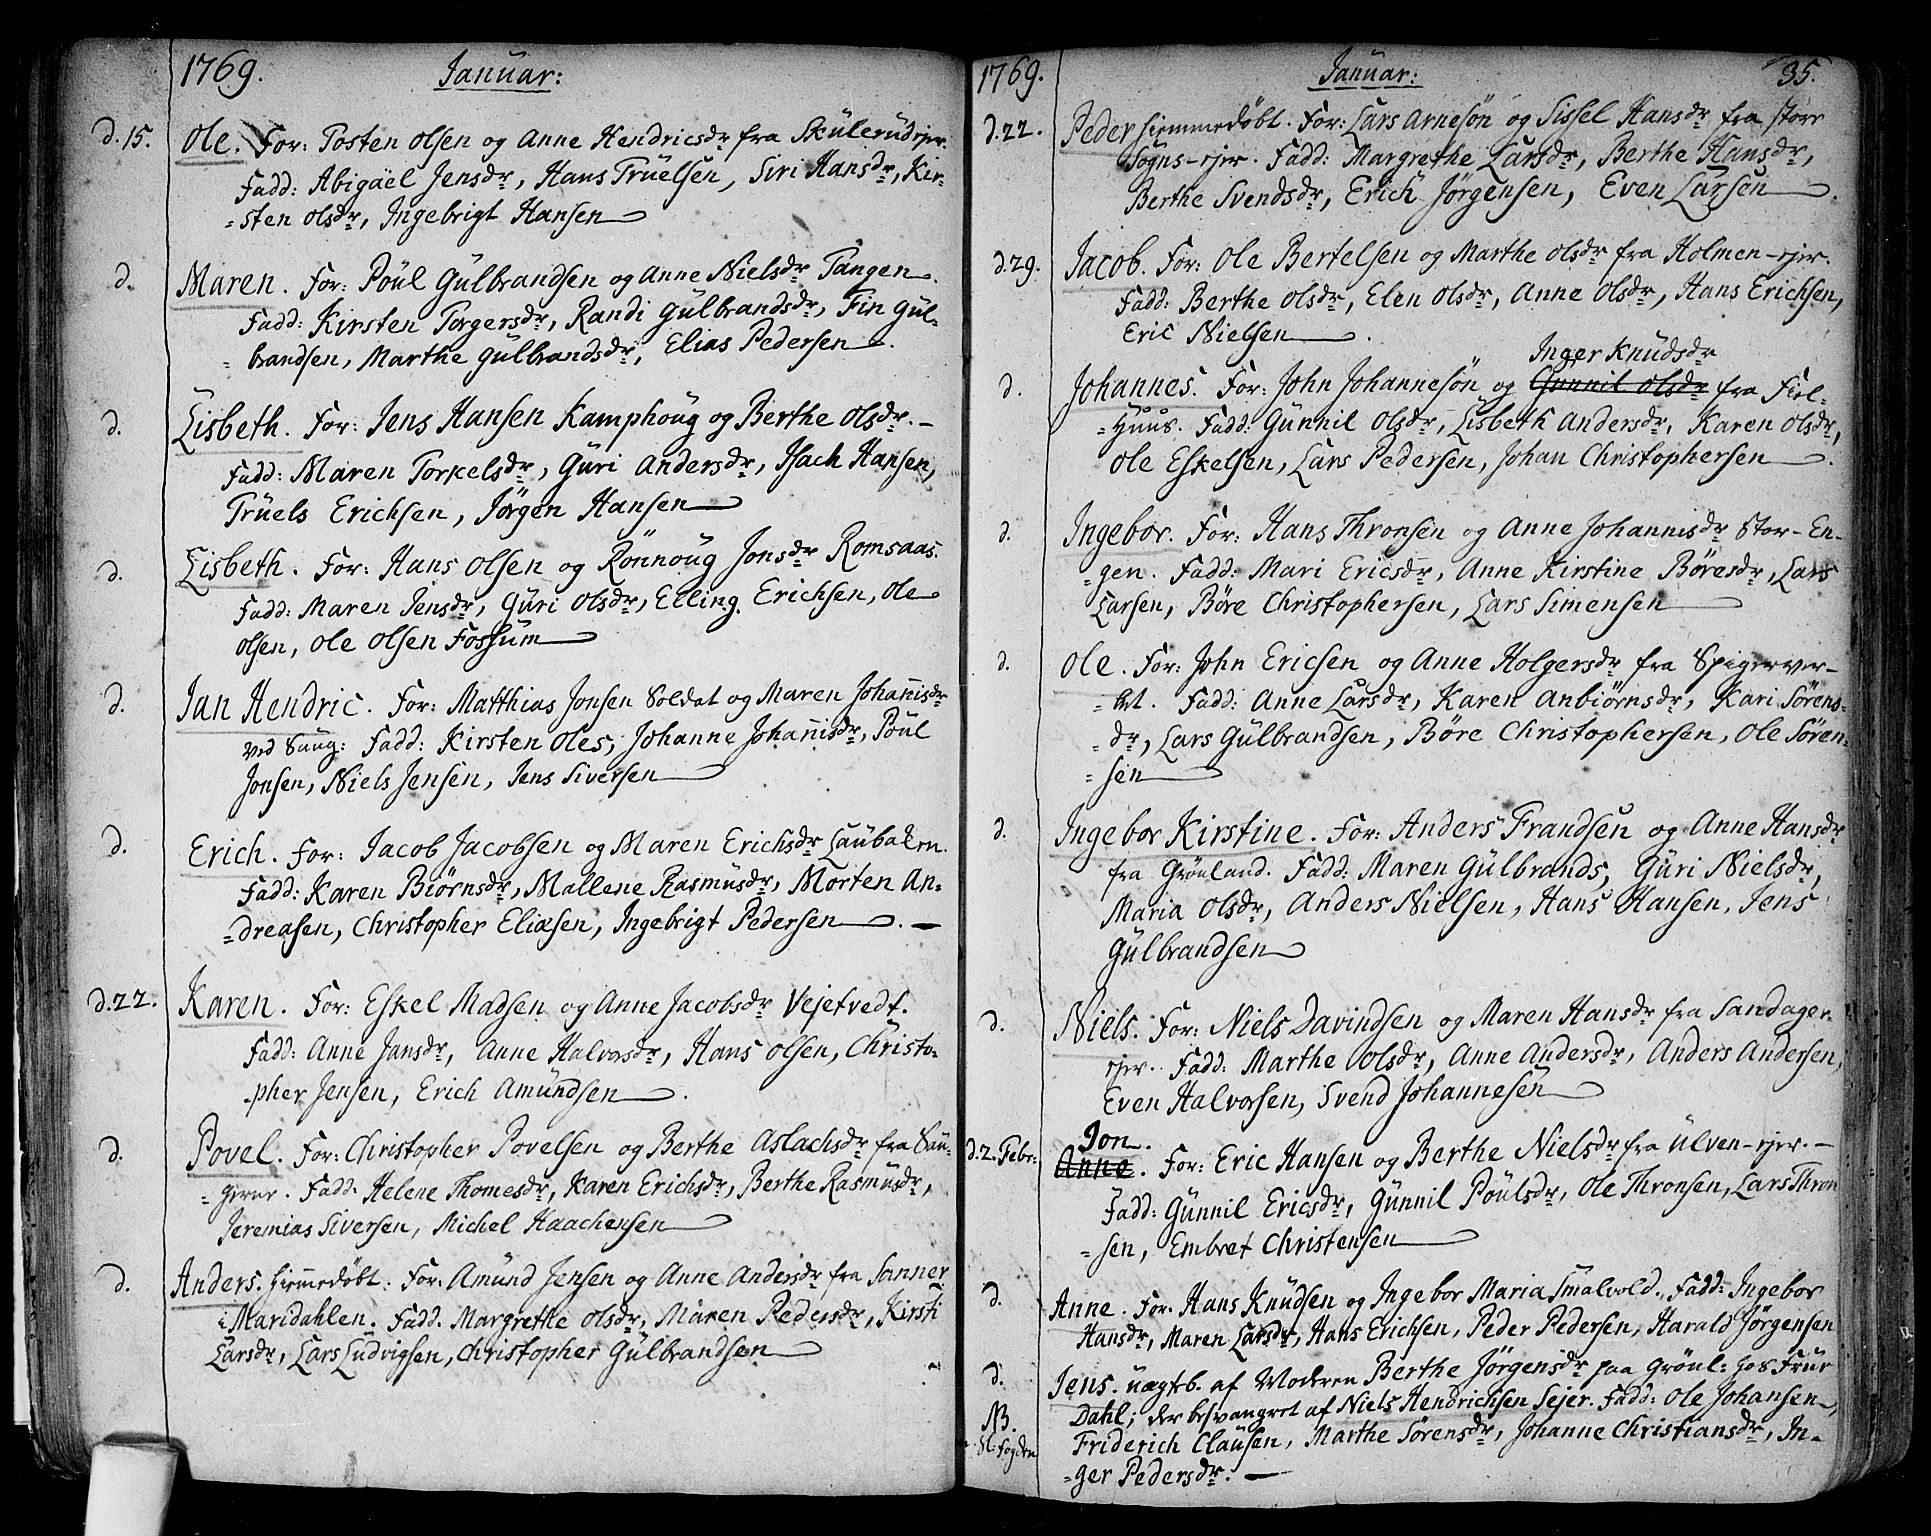 1769. Januar:
d. 15. Ole. For: Tosten Olsen og Anne Hendricsdr fra Skülerudejer.
Fadd: Abigaël Jensdr, Hans Trüelsen, Siri Hansdr, Kir-
-sten Olsdr, Ingebrigt Hansen
d. Maren. For: Poül Gülbrandsen og Anne Nielsdr Tangen.
Fadd: Kirsten Torgersdr, Randi Gülbrandsdr, Fin Gül-
-brandsen, Marthe Gülbrandsdr, Elias Pedersen.
d. Lisbeth. For: Jens Hansen Kamphoug og Berthe Olsdr.
Fadd: Maren Torkelsdr, Güri Andersdr, Isach Hansen,
Trüels Erichsen, Jörgen Hansen
d. Lisbeth. For: Hans Olsen og Rönnoüg Jonsdr Romsaas.
Fadd: Maren Jensdr, Güri Olsdr, Elling Erichsen, Ole
Olsen, Ole Olsen Fossum
d. Jan Hendric. For: Matthias Jonsen Soldat og Maren Johañisdr
ved Saug: Fadd: Kirsten Oles, Johanne Johañisdr, Poül
Jonsen, Niels Jensen, Jens Siversen
d. Erich. For: Jacob Jacobsen og Maren Erichsdr Laübaken.
Fadd: Karen Biörnsdr, Mallene Rasmüsdr, Morten An-
-dreasen, Christopher Eliasen, Ingebrigt Pedersen.
d. 22. Karen. For: Eskel Madsen og Anne Jacobsdr Vejetvedt.
Fadd: Anne Jansdr, Anne Halvorsdr, Hans Olsen, Christo-
-pher Jensen, Erich Amündsen.
d. Povel. For: Christopher Povelsen og Berthe Aslachsdr fra Saü-
-gerne. Fadd: Helene Thomesdr, Karen Erichsdr, Berthe Rasmüsdr,
Jeremias Siversen, Michel Haachensen
d. Anders. hiemmedöbt. For: Amünd Jensen og Anne Andersdr fra Sanner
i Maridahlen. Fadd. Margrethe Olsdr, Maren Pedersdr, Kirsti
Larsdr, Lars Ludvigsen, Christopher Gülbrandsen
1769. Januar: 35.
d. 22. Peder hiemmedöbt. For: Lars Arnesön og Sissel Hansdr fra Störe
Sogns-ejer. Fadd: Margrethe Larsdr, Berthe Hansdr,
Berthe Svendsdr, Erich Jörgensen, Even Larsen.
d. 29. Jacob. For: Ole Bertelsen og Marthe Olsdr fra Holmen-ejer.
Fadd: Berthe Olsdr, Elen Olsdr, Anne Olsdr, Hans Erichsen,
Eric Nielsen.
Inger Knüdsdr
d. Johannes. For: John Johannesön og Günnil Olsdr fra Fiel-
-Huus. Fadd: Günnil Olsdr, Lisbeth Andersdr, Karen Olsdr,
Ole Eskelsen, Lars Pedersen, Johan Christophersen.
d. Ingebor. For: Hans Thronsen og Anne Johannisdr Stor-En-
-gen. Fadd: Mari Ericsdr, Anne Kirstine Böresdr, Lars
Larsen, Böre Christophersen, Lars Simensen
d. Ole. For: John Ericsen og Anne Holgersdr fra Spigerver-
-ket. Fadd: Anne Larsdr, Karen Anbiörnsdr, Kari Sörens-
-dr, Lars Gülbrandsen, Böre Christophersen, Ole Sören-
-sen
d. Ingebor Kirstine. For: Anders Frandsen og Anne Hansdr
fra Grönland. Fadd: Maren Gülbrands, Güri Nielsdr,
Maria Olsdr, Anders Nielsen, Hans Hansen, Jens
Gülbrandsen
d. Niels. For: Niels Davindsen og Maren Hansdr fra Sandager-
ejer. Fadd: Marthe Olsdr, Anne Andersdr, Anders Andersen,
Even Halvorsen, Svend Johannesen
Jon.
d. 2. Febr: Anne. For: Eric Hansen og Berthe Nielsdr fra Ulven-ejer.
Fadd: Günnil Ericsdr, Günnil Poülsdr, Ole Thronsen, Lars Thron
-sen, Embret Christensen
d. Anne. For: Hans Knüdsen og Ingebor Maria Smalvold. Fadd: Ingebor
Hansdr, Maren Larsdr, Hans Erichsen, Peder Pedersen, Harald Jörgensen
d. Jens. uægteb. af Moderen Berthe Jörgensdr paa Grönl: hos Frue
Dahl; der besvangret af Niels Hendrichsen Sejer. Fadd: Ole Johansen,
NB. Friderich Claüsen, Marthe Sörensdr, Johanne Christiansdr, In-
-ger Pedersdr.